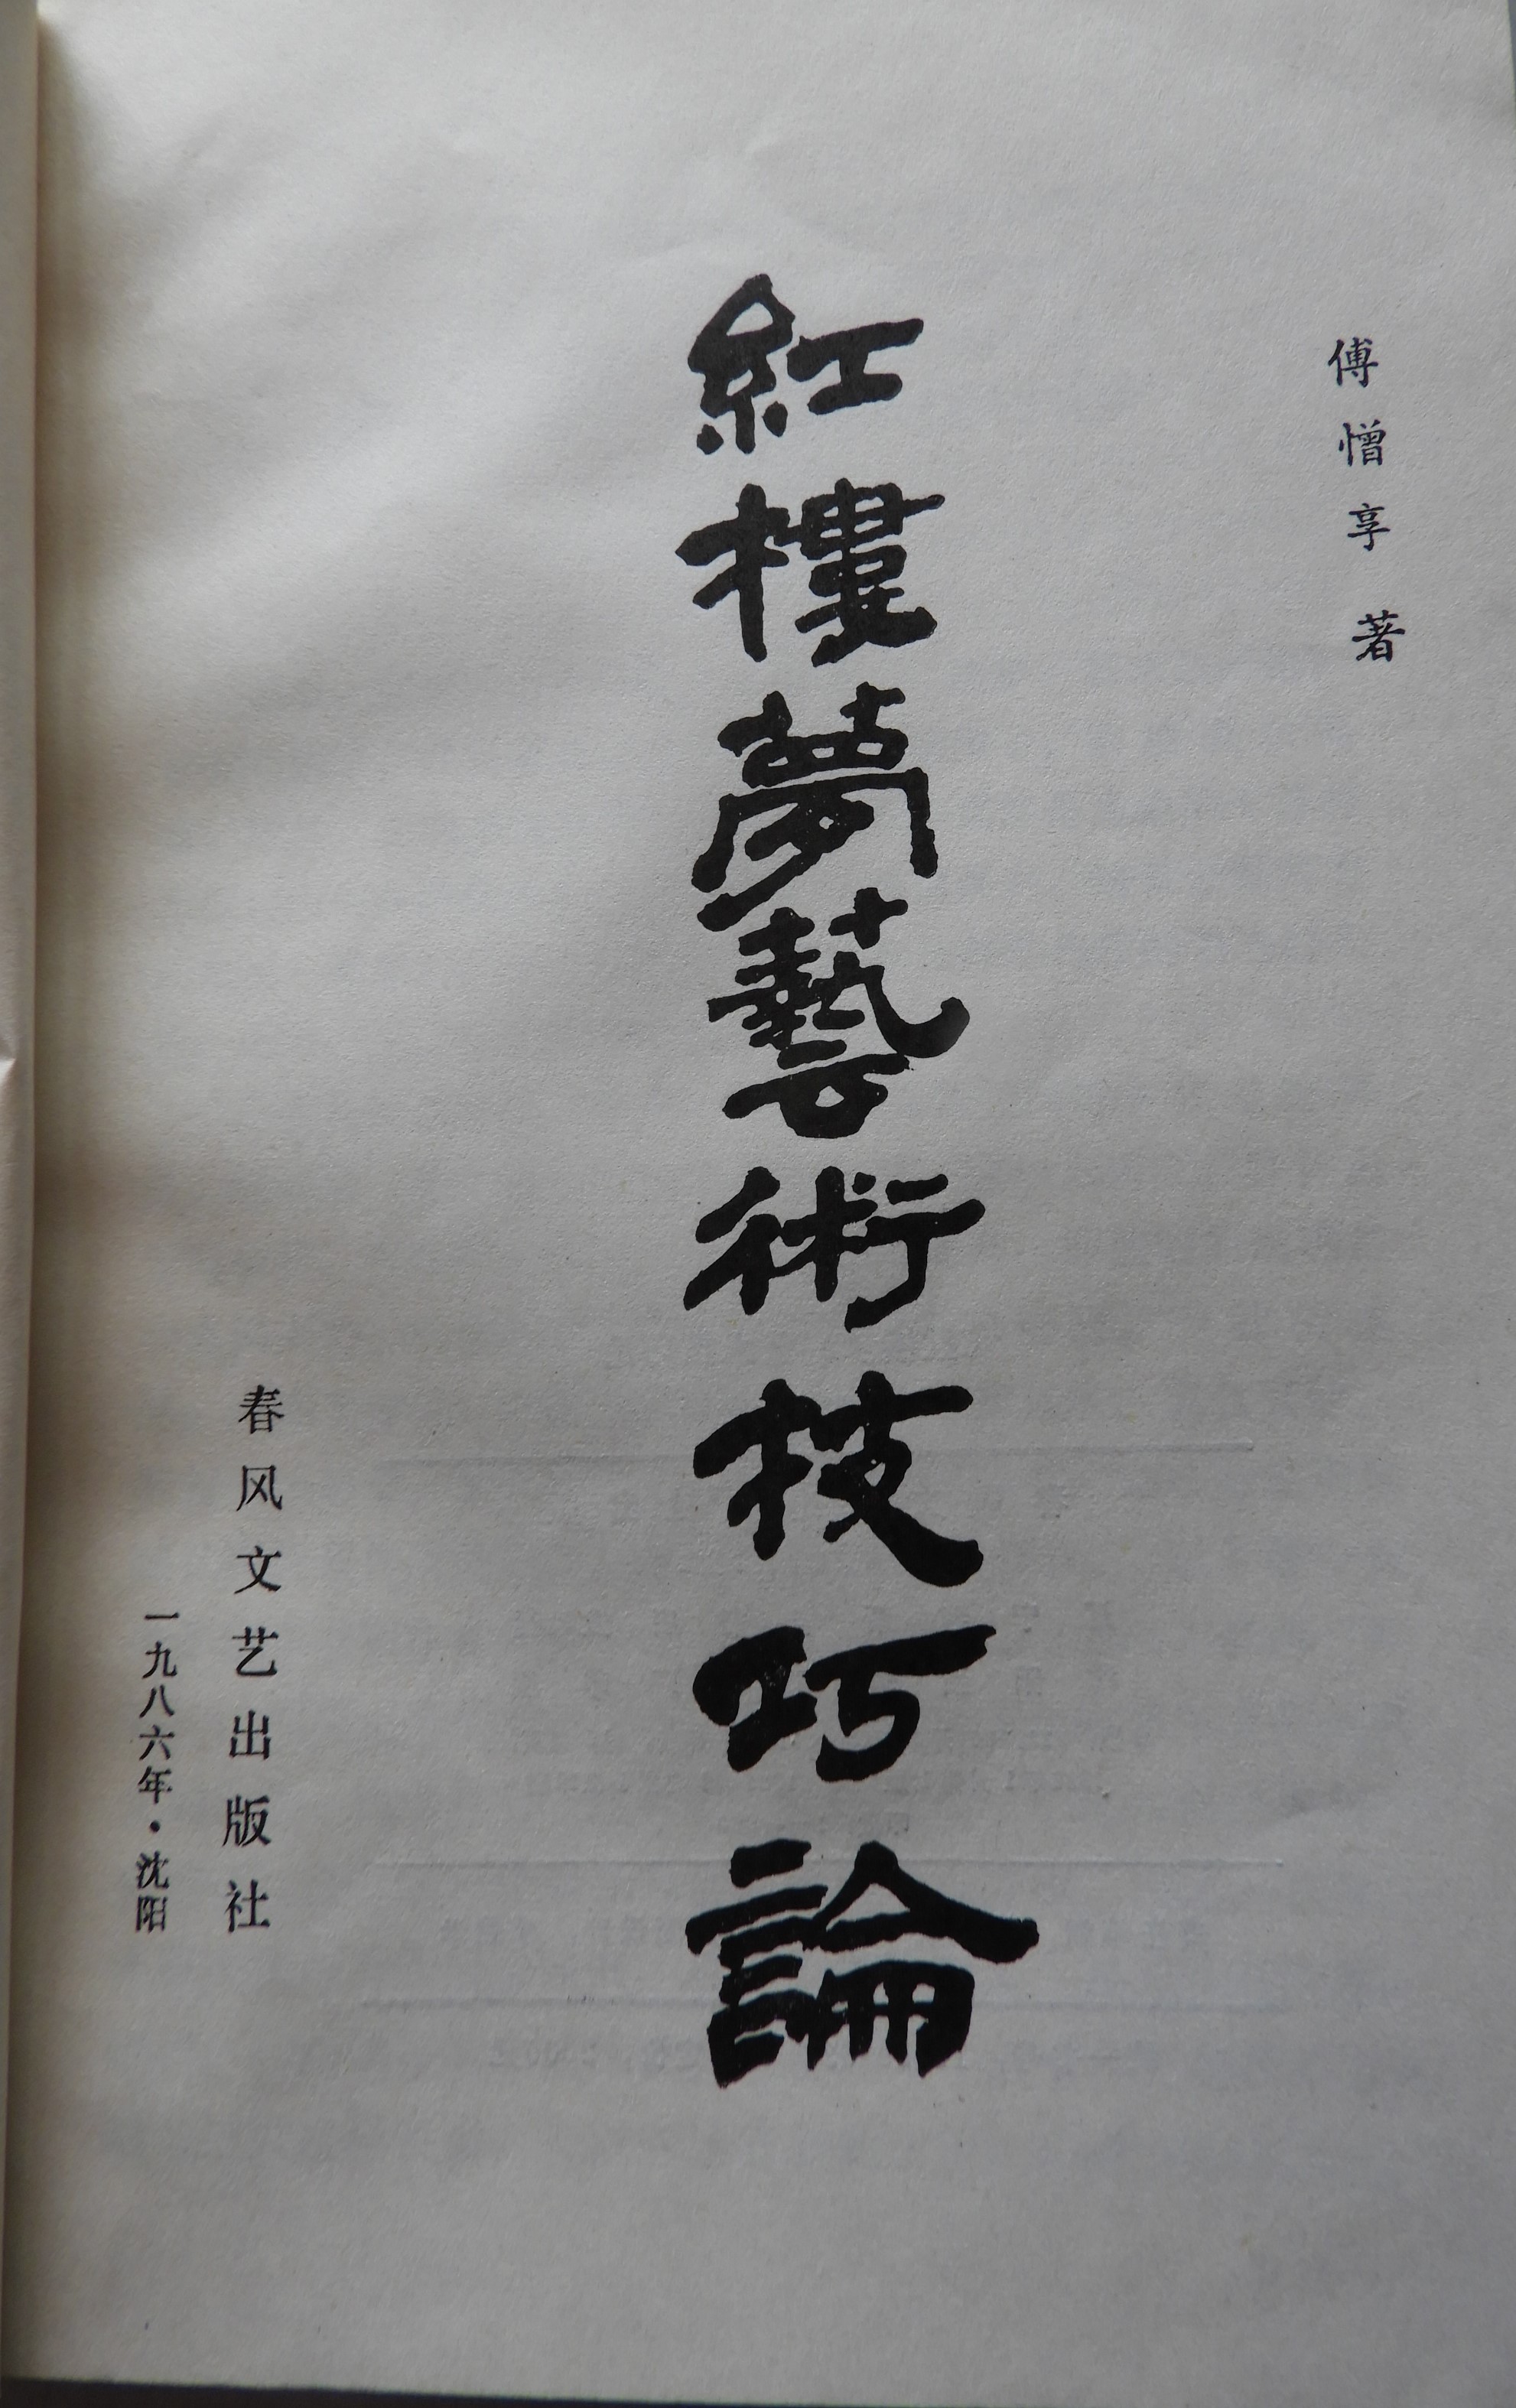 傅憎享 著
紅樓夢藝術技巧論
春风文艺出版社
一九八六年·沈阳